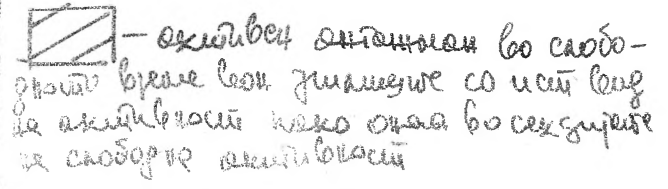 — активен ангажман во слобо-
дното време вон училиште со ист вид
на активност како онаа во секциите
на слободне активности